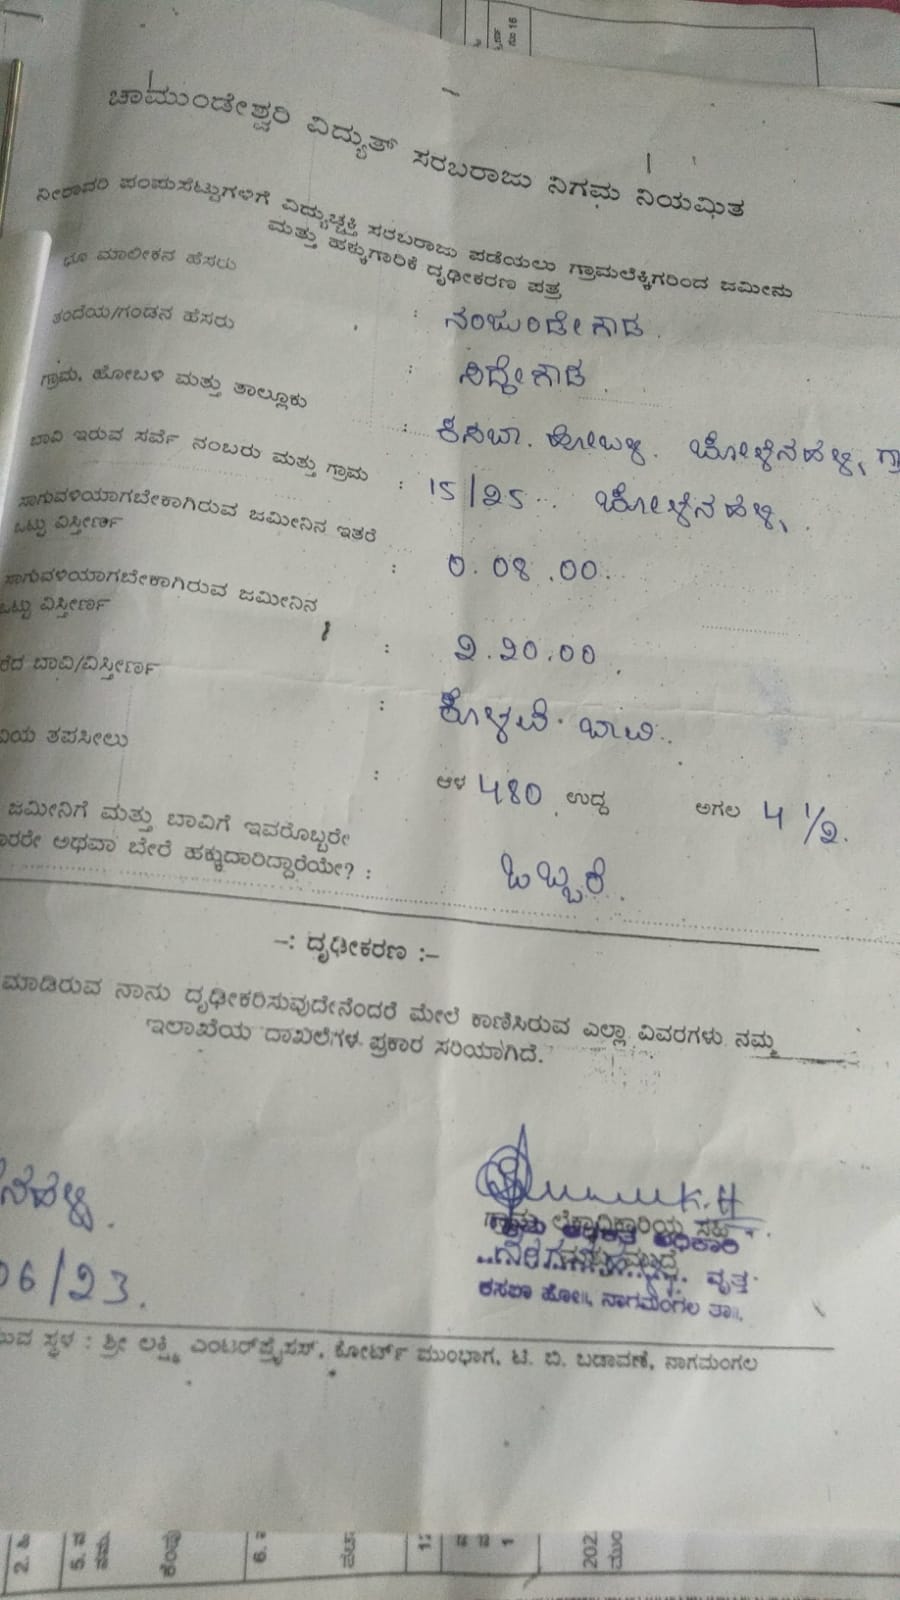 ಚಾಮುಂಡೇಶ್ವರಿ ವಿದ್ಯುತ್ ಸರಬರಾಜು ನಿಗಮ ನಿಯಮಿತ
ನೀರಾವರಿ ಪಂಪುಸೆಟ್ಟುಗಳಿಗೆ ವಿದ್ಯುಚ್ಛಕ್ತಿ ಸರಬರಾಜು ಪಡೆಯಲು ಗ್ರಾಮಲೆಕ್ಕಿಗರಿಂದ ಜಮೀನು
ಮತ್ತು ಹಕ್ಕುಗಾರಿಕೆ ದೃಢೀಕರಣ ಪತ್ರ
ಭೂ ಮಾಲೀಕನ ಹೆಸರು : ನಂಜುಂಡೇಗೌಡ
ತಂದೆಯ/ಗಂಡನ ಹೆಸರು : ಸಿದ್ದೇಗೌಡ
ಗ್ರಾಮ, ಹೋಬಳಿ ಮತ್ತು ತಾಲ್ಲೂಕು : ಕಸಬಾ. ಹೋಬಳಿ.
ಬಾವಿ ಇರುವ ಸರ್ವೆ ನಂಬರು ಮತ್ತು ಗ್ರಾಮ : 15/25
ಸಾಗುವಳಿಯಾಗಬೇಕಾಗಿರುವ ಜಮೀನಿನ ಇತರೆ
ಒಟ್ಟು ವಿಸ್ತೀರ್ಣ : 0.08.00.
ಸಾಗುವಳಿಯಾಗಬೇಕಾಗಿರುವ ಜಮೀನಿನ
ಒಟ್ಟು ವಿಸ್ತೀರ್ಣ : 2.20.00
ಬಾವಿ/ವಿಸ್ತೀರ್ಣ : ಕೊಳವೆ ಬಾವಿ.
ತಪಸೀಲು : ಆಳ 480 ಉದ್ದ ಅಗಲ 4 1/2.
ಜಮೀನಿಗೆ ಮತ್ತು ಬಾವಿಗೆ ಇವರೊಬ್ಬರೇ
ಅಥವಾ ಬೇರೆ ಹಕ್ಕುದಾರಿದ್ದಾರೆಯೇ? : ಒಬ್ಬರೆ
-: ದೃಢೀಕರಣ :-
ಮಾಡಿರುವ ನಾನು ದೃಢೀಕರಿಸುವುದೇನೆಂದರೆ ಮೇಲೆ ಕಾಣಿಸಿರುವ ಎಲ್ಲಾ ವಿವರಗಳು ನಮ್ಮ
ಇಲಾಖೆಯ ದಾಖಲೆಗಳ ಪ್ರಕಾರ ಸರಿಯಾಗಿದೆ.
06/23.
ವೃತ್ತ
ಕಸಬಾ ಹೋ॥, ನಾಗಮಂಗಲ ತಾ॥.
ಸ್ಥಳ : ಶ್ರೀ ಲಕ್ಷ್ಮಿ ಎಂಟರ್‌ಪ್ರೈಸಸ್, ಕೋರ್ಟ್ ಮುಂಭಾಗ, ಟಿ. ಬಿ. ಬಡಾವಣೆ, ನಾಗಮಂಗಲ